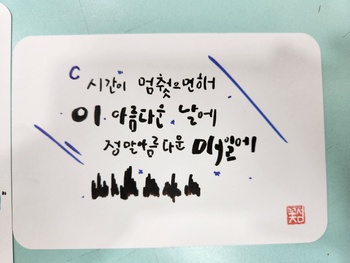 시간이 멈췄으면해
이 아름다운 날에
정말아름다운 매일에